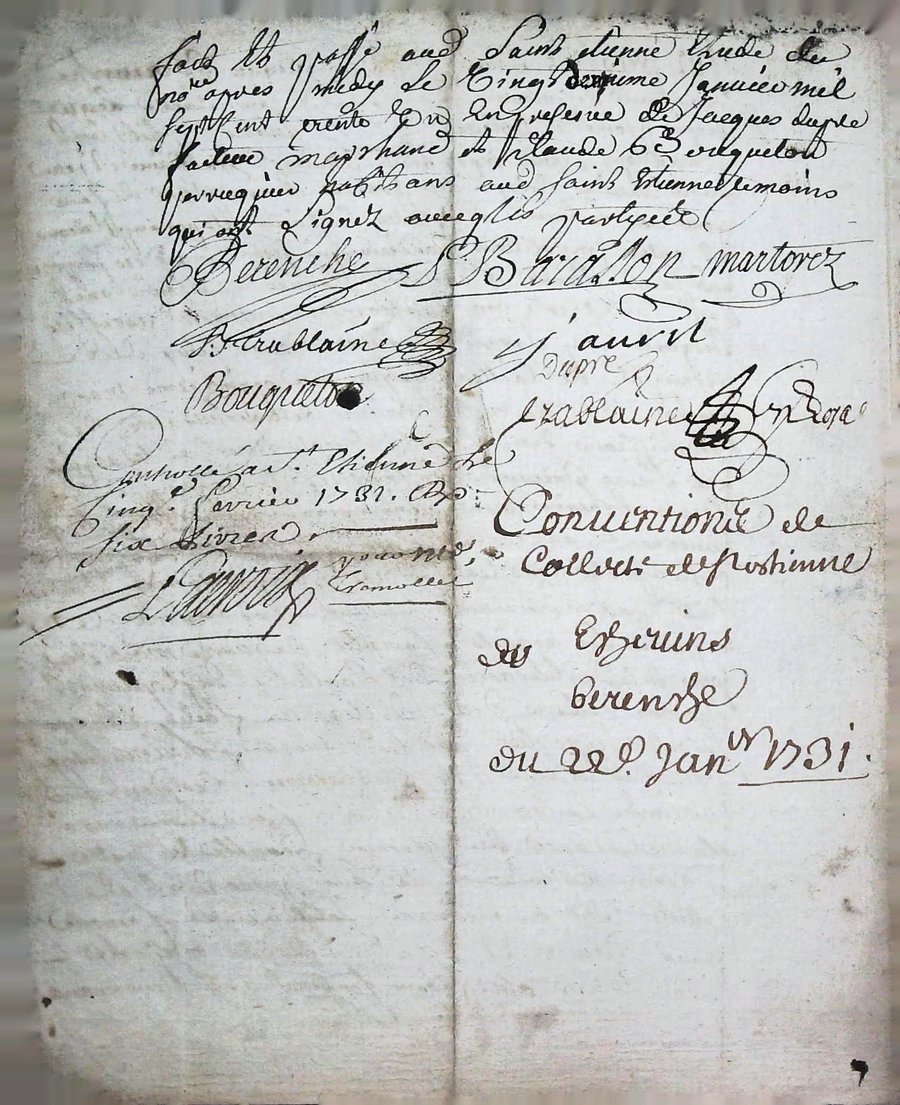 fait et passé aud Saint etienne etude du
no.re apres midy le vingt deuxième Janvier mil
sept cent trente un en presence de Jacques dupre
facteur marchand et Claude bouqueton
perruquier habitans aud Saint Etienne temoins
qui ont signez avec les parties
Berenche Baraillon martorez
Trablaine J auvril
Dupré
Bouqueton Trablaine
Controllé a St. Etienne le
cinq.e fevrier 1731. Reçu
six Livres
Conventions de
Collecte de St Estienne
des Eschevins
berenche
du 22e. Janvr 1731.